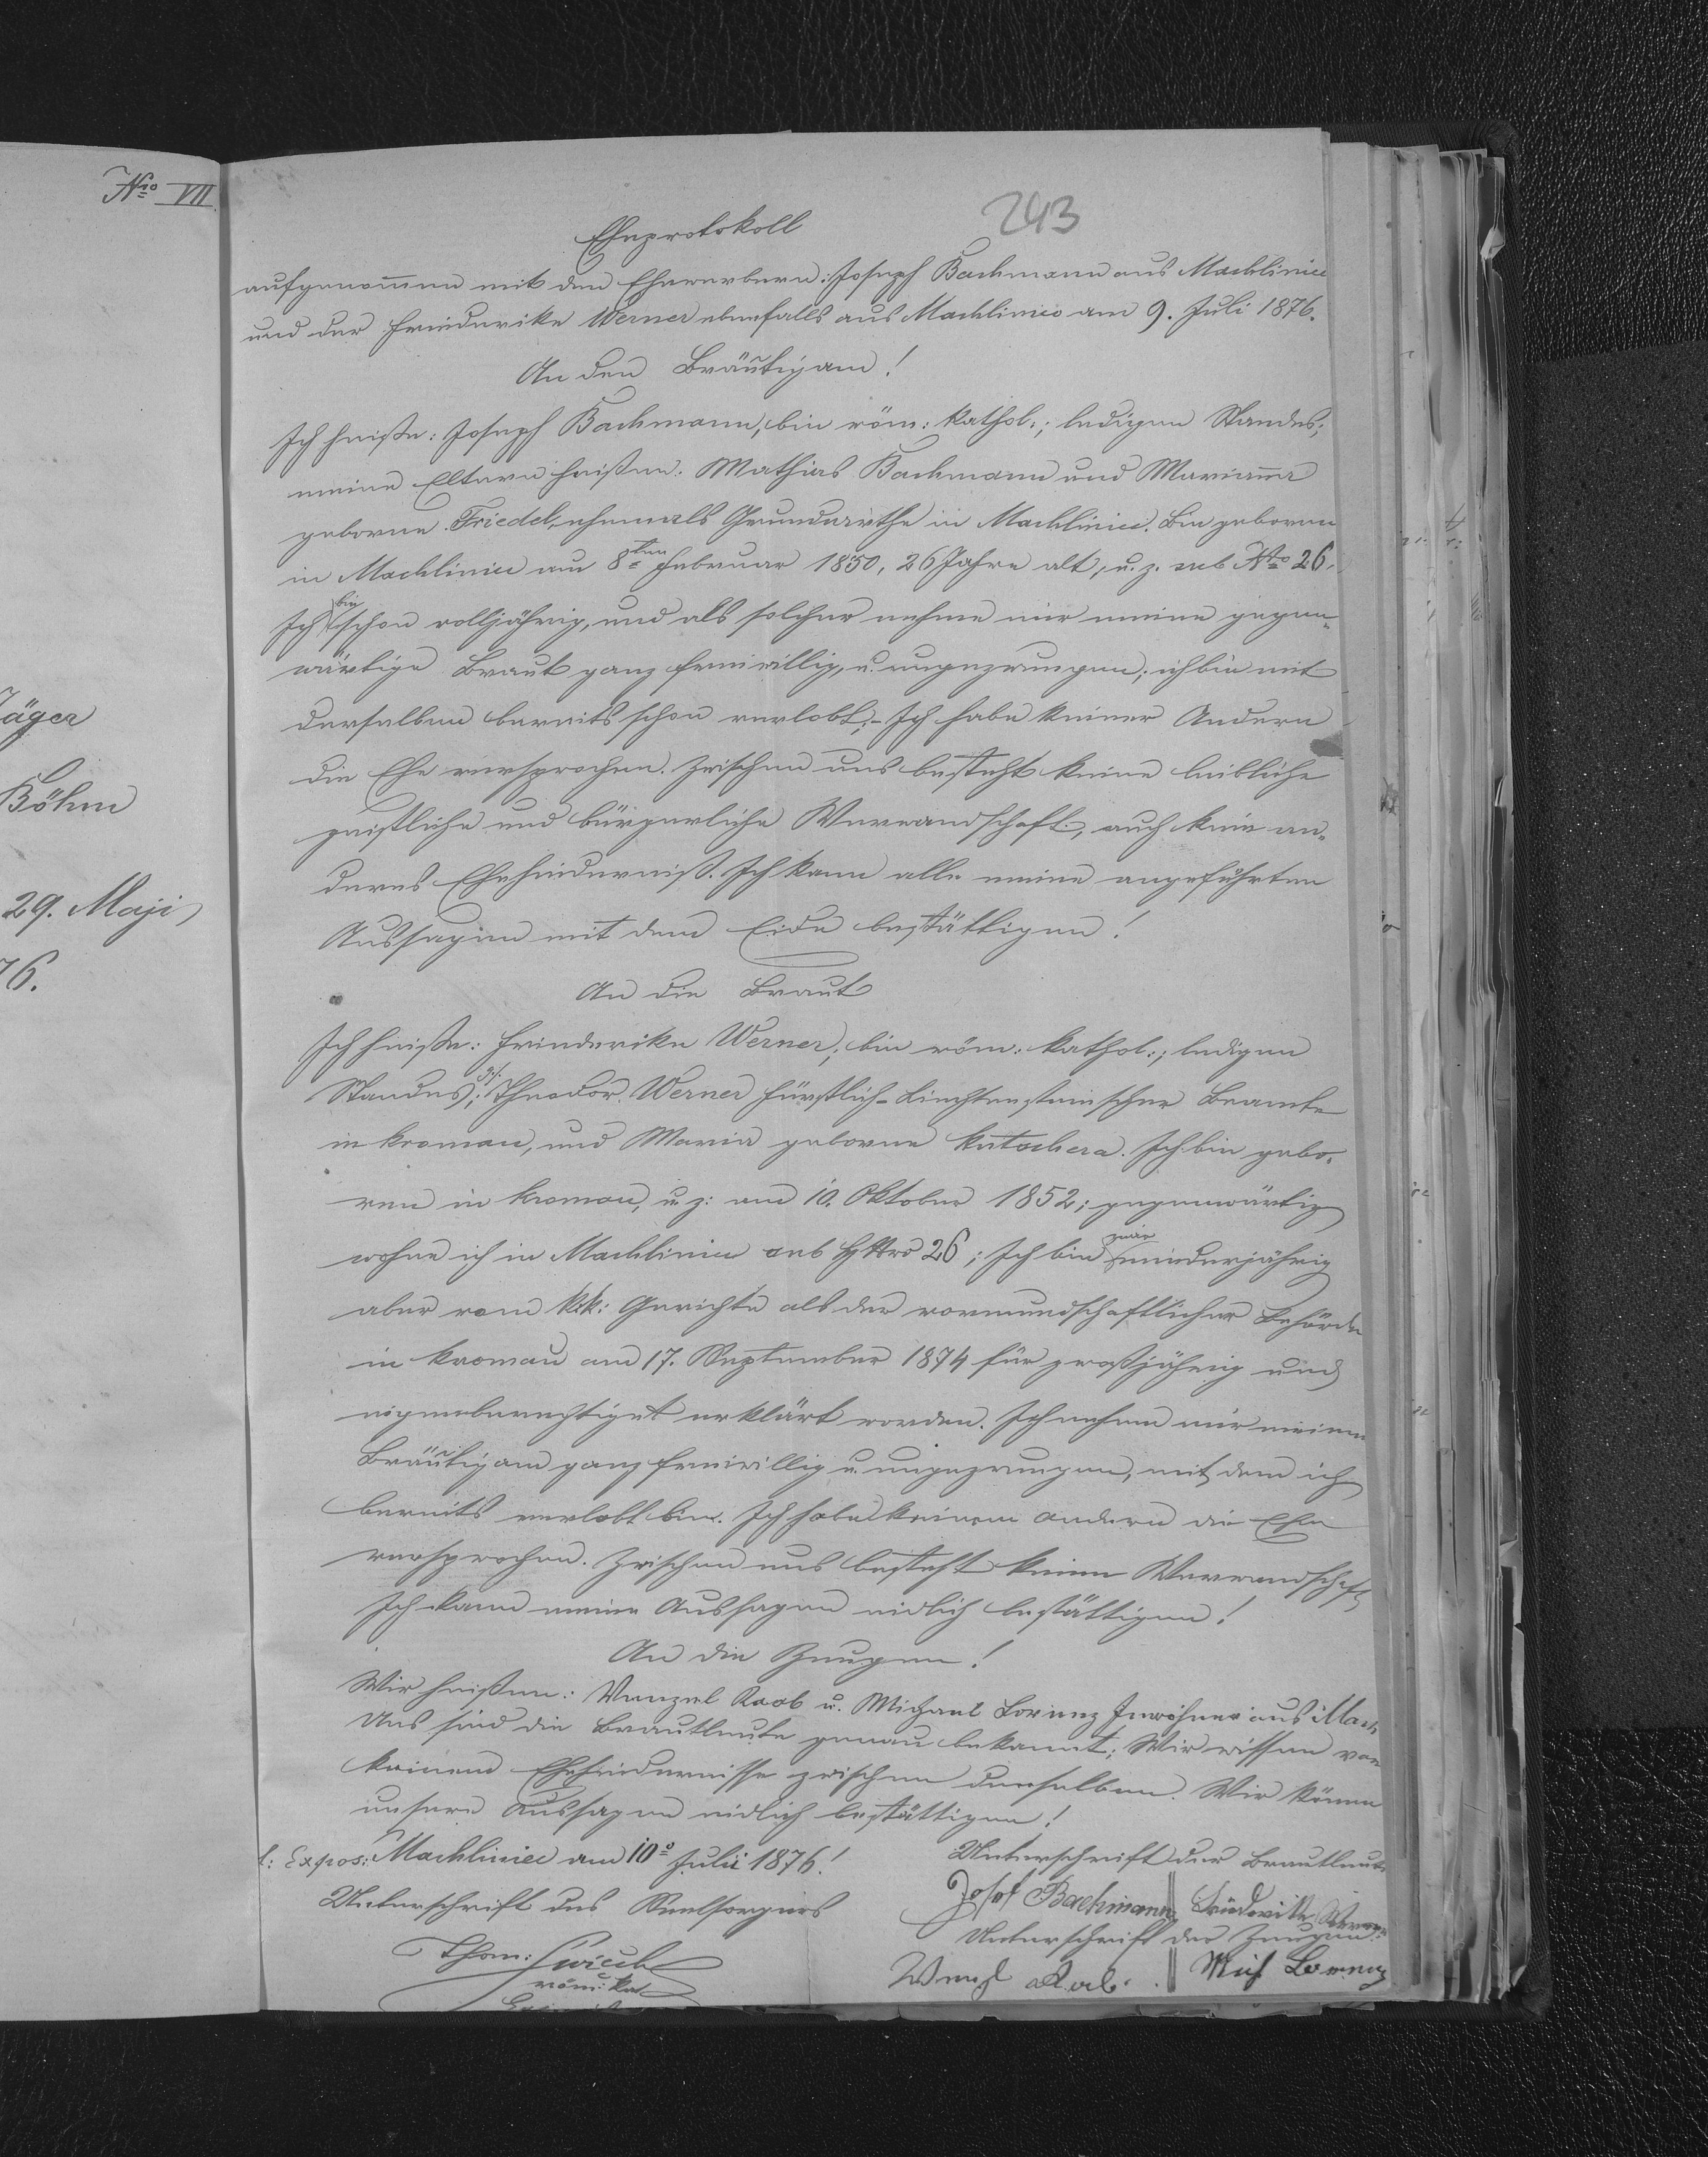 Nro VII.
243
Jäger
Böhm
29. Maji
76.
Eheprotokoll
aufgenommen mit den Ehewerbern: Joseph Bachmann aus Machliniec
und der Friederike Werner ebenfalls aus Machliniec am 9. Juli 1876.
An den Bräutigam!
Ich heiße: Joseph Bachmann, bin röm: kathol:; ledigen Standes;
meine Eltern heißen: Mathias Bachmann und Marianna
geborene Friedel, ehemals Grundwirthe in Machliniec. Bin geboren
in Machliniec am 8ten Februar 1850, 26 Jahre alt, u. z. sub Nro 26.
Ich bin schon volljährig, und als solcher nehme mir meine gegen-
wärtige Braut ganz freiwillig, u. ungezwungen; ich bin mit
derselben bereits schon verlobt;- Ich habe keiner Andern
die Ehe versprochen. Zwischen uns besteht keine leibliche
geistliche und bürgerliche Verwandschaft, auch kein an-
deres Ehehinderniß. Ich kann alle meine angeführten
Aussagen mit dem Eide bestättigen!
An die Braut
Ich heiße: Friederike Werner, bin röm: kathol:; ledigen
Standes; Theodor Werner fürstlich-Liechtensteinischer Beamte
in Kromau, und Maria geborene Katschera. Ich bin gebo-
ren in Kromau, u. z: am 10. Oktober 1852; gegenwärtig
wohne ich in Machliniec sub Hs Nro 26; Ich bin zwar minderjährig
aber vom k:k: Gerichte als der vormundschaftlicher Behörde
in Kromau am 17. September 1874 für großjährig und
eigenberechtiget erklärt worden. Ich nehme mir meinen
Bräutigam ganz freiwillig u. ungezwungen, mit dem ich
bereits verlobt bin. Ich habe keinem andern die Ehe
versprochen. Zwischen uns besteht keine Verwandschaft
Ich kann meine Aussagen eidlich bestättigen!
An die Zeugen!
Wir heißen: Wenzel Raab u. Michael Lorenz Inwohner aus Mach
Uns sind die Brautleute genau bekannt; Wir wissen von
keinem Ehehindernisse zwischen denselben. Wir können
unsere Aussagen eidlich bestättigen!
l: Expos: Machliniec am 10o Julii 1876!
Unterschrift der Brautleute
Unterschrift des Seelsorgers
Josef Bachmann || Friederike Werner
Unterschrift der Zeugen:
Thom:
röm: kat
Wenzl Rab. || Mich Lorenz